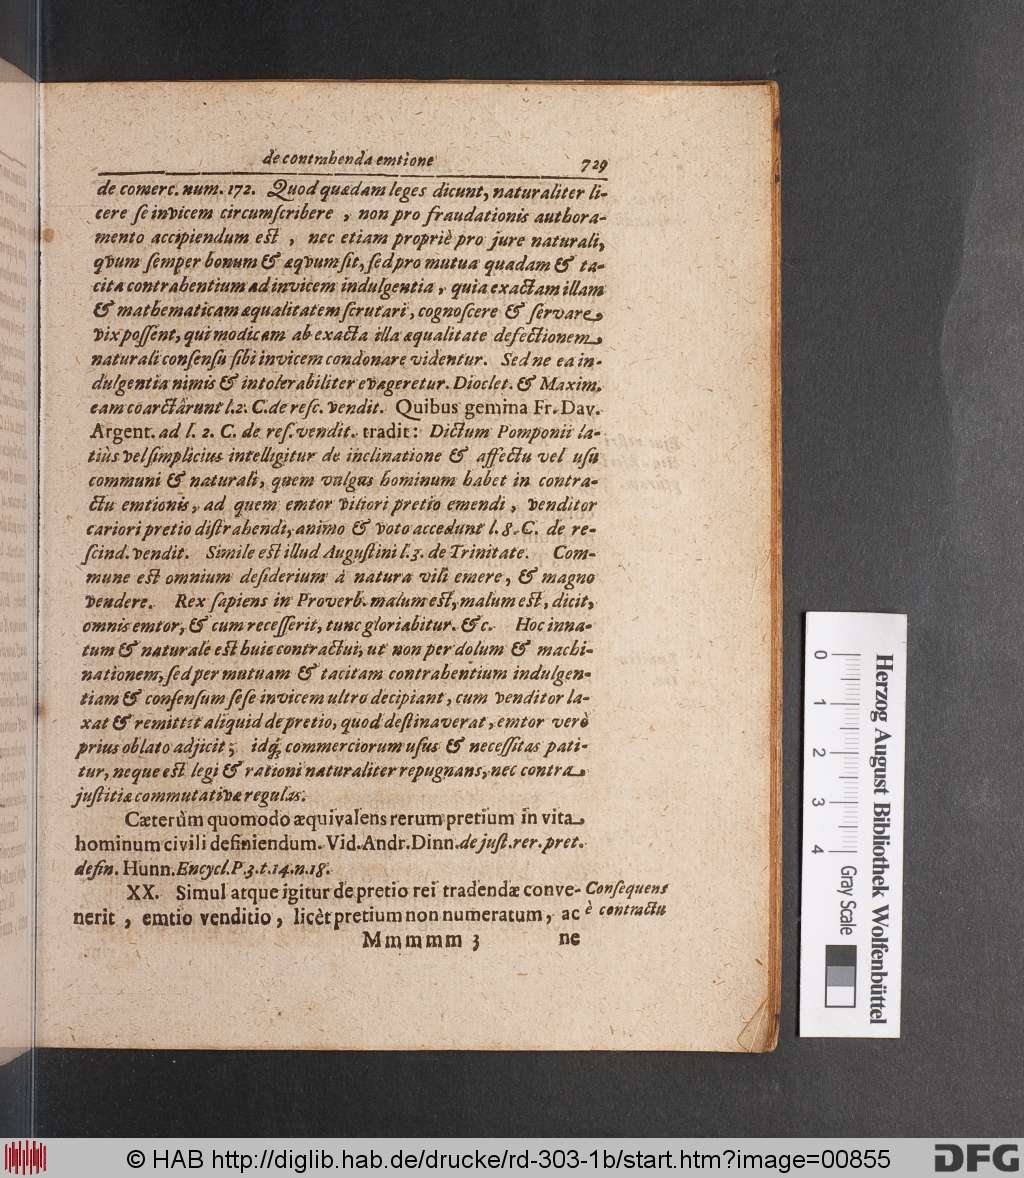 de contrahenda emtione 729
de comerc. num. 172. Quod quædam leges dicunt, naturaliter li-
cere se invicem circumscribere, non pro fraudationis authora-
mento accipiendum est, nec etiam propriè pro jure naturali,
qvum semper bonum & æqvum sit, sed pro mutua quadam & ta-
cita contrahentium ad invicem indulgentia, quia exactam illam
& mathematicam æqualitatem scrutari, cognoscere & servare
vix possent, qui modicam ab exacta illa æqualitate defectionem
naturali consensu sibi invicem condonare videntur. Sed ne ea in-
dulgentia nimis & intolerabiliter evageretur. Dioclet. & Maxim.
eam coarctârunt l. 2. C. de resc. vendit. Quibus gemina Fr. Dav.
Argent. ad l. 2. C. de res. vendit. tradit: Dictum Pomponii la-
tiùs vel simplicius intelligitur de inclinatione & affectu vel usu
communi & naturali, quem vulgus hominum habet in contra-
ctu emtionis, ad quem emtor viliori pretio emendi, venditor
cariori pretio distrahendi, animo & voto accedunt l. 8. C. de re-
scind. vendit. Simile est illud Augustini l. 3. de Trinitate. Com-
mune est omnium desiderium à natura vili emere, & magno
vendere. Rex sapiens in Proverb. malum est, malum est, dicit,
omnis emtor, & cum recesserit, tunc gloriabitur. &c. Hoc inna-
tum & naturale est huic contractui, ut non per dolum & machi-
nationem, sed per mutuam & tacitam contrahentium indulgen-
tiam & consensum sese invicem ultro decipiant, cum venditor la-
xat & remittit aliquid de pretio, quod destinaverat, emtor verò
prius oblato adjicit; idq́; commerciorum usus & necessitas pati-
tur, neque est legi & rationi naturaliter repugnans, nec contra
justitiæ commutativæ regulas.
Cæterùm quomodo æquivalens rerum pretium in vita
hominum civili definiendum. Vid. Andr. Dinn. de just. rer. pret.
defin. Hunn. Encycl. P. 3. t. 14. n. 18.
XX. Simul atque igitur de pretio rei tradendæ conve-
nerit, emtio venditio, licèt pretium non numeratum, ac
Consequens
è contractu
Mmmmm 3 ne
0 1 2 3 4
Gray Scale
Herzog August Bibliothek Wolfenbüttel
© HAB http://diglib.hab.de/drucke/rd-303-1b/start.htm?image=00855
DFG